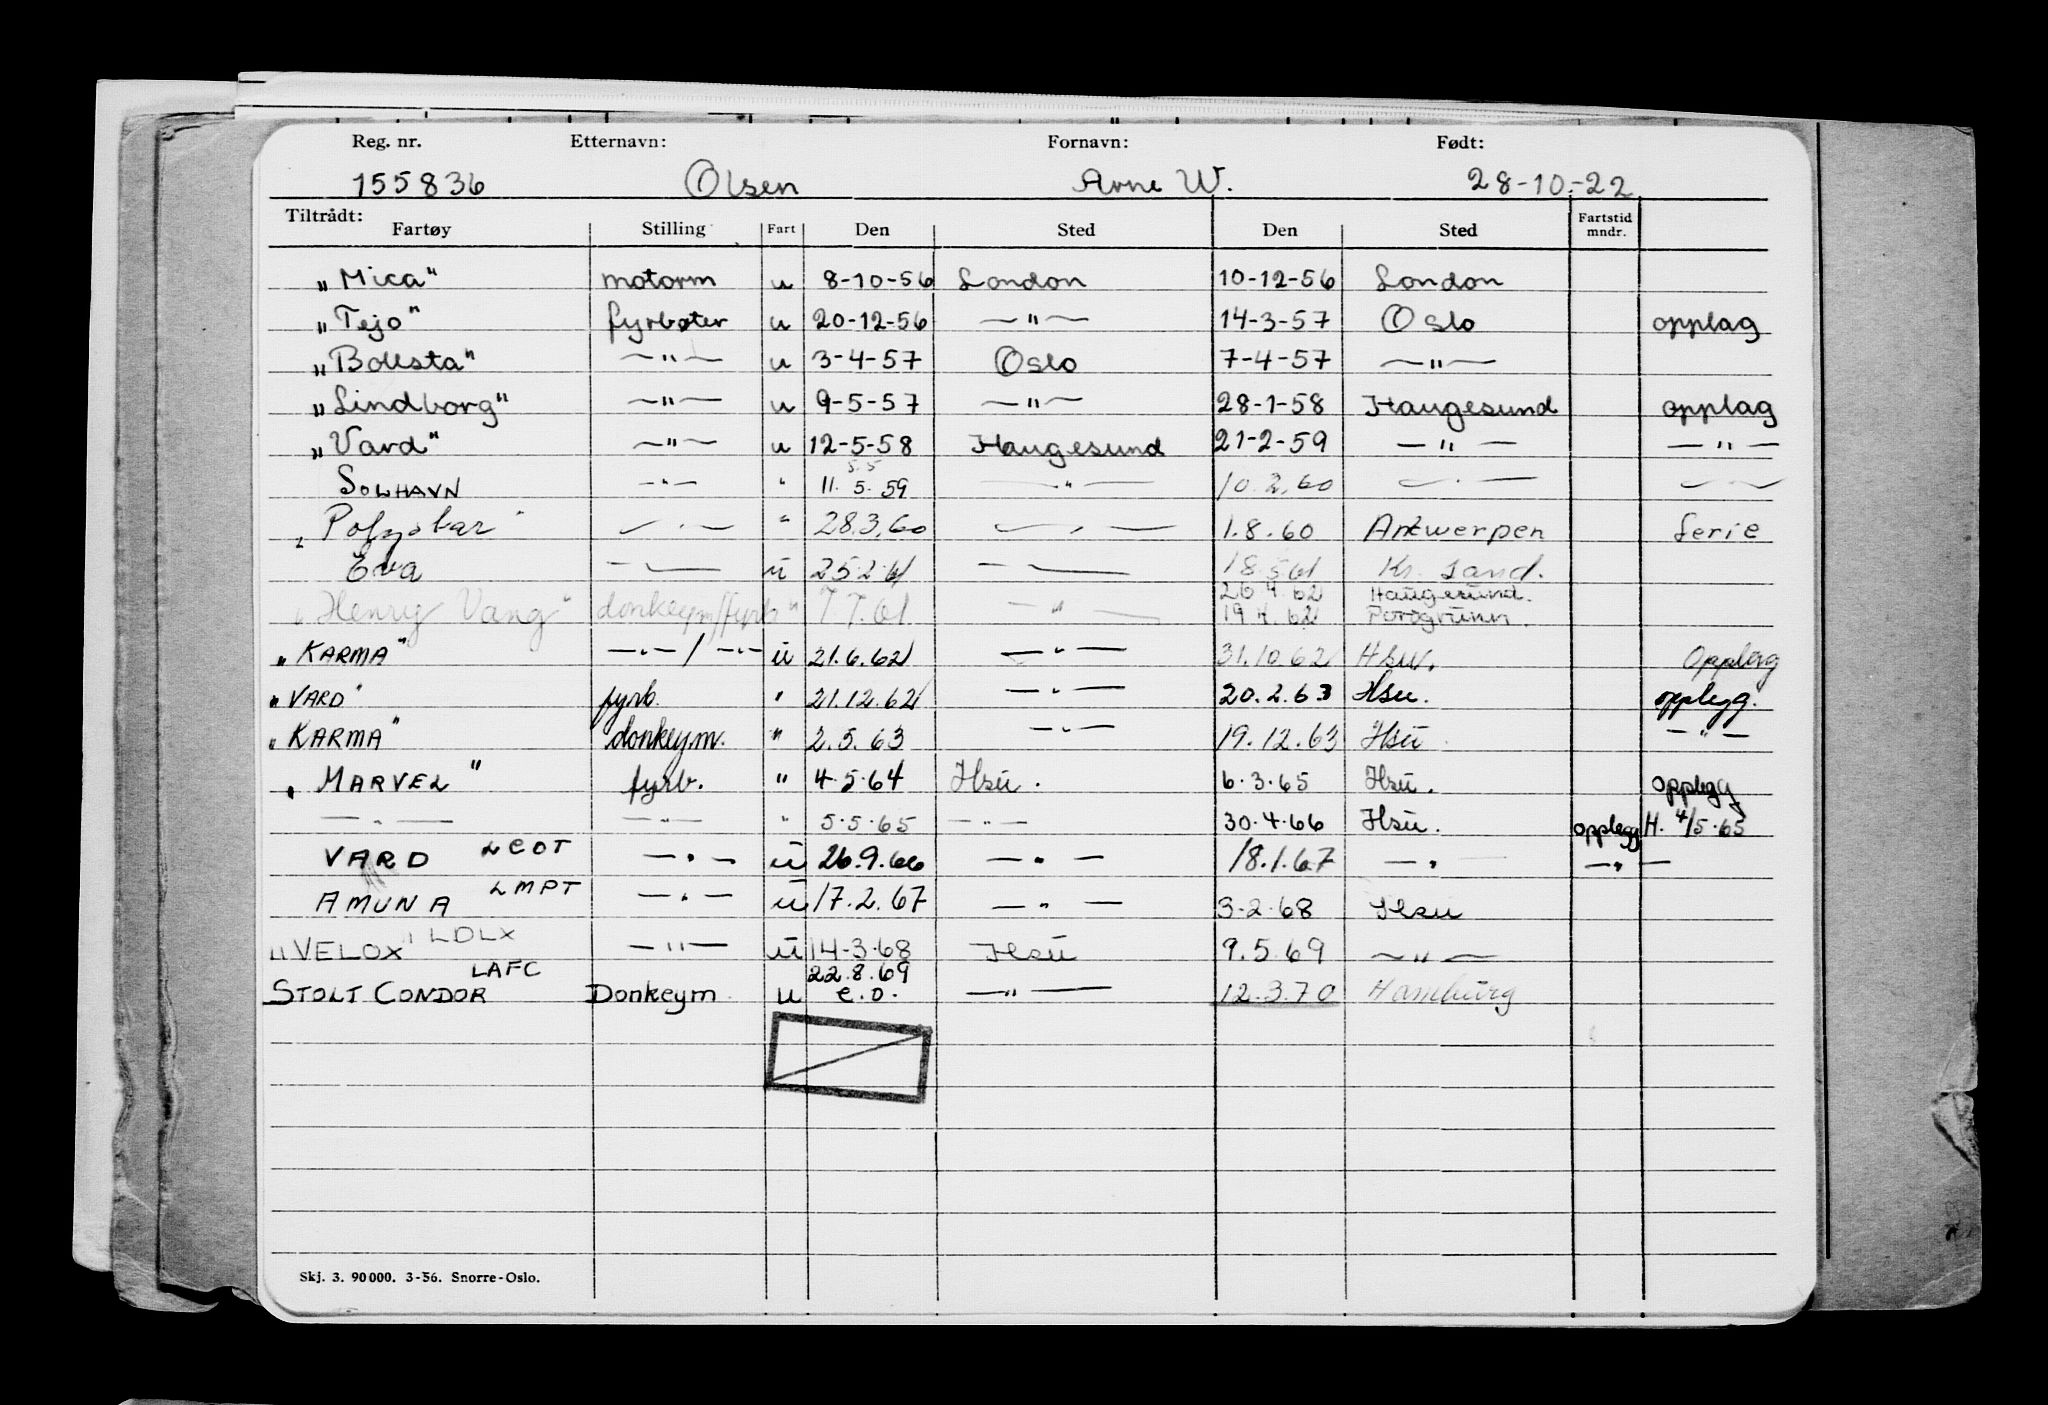 Reg. nr. Etternavn: Fornavn: Født:
155836 Olsen Arne W. 28-10-22
Tiltrådt:
Fartøy Stilling Fart Den Sted Den Sted Fartstid mndr.
"Mica" motorm u 8-10-56 London 10-12-56 London
"Tejo" fyrbøter u 20-12-56 —"— 14-3-57 Oslo opplag
"Bollsta" —"— u 3-4-57 Oslo 7-4-57 —"—
"Lindborg" —"— u 9-5-57 —"— 28-1-58 Haugesund opplag
"Vard" —"— u 12-5-58 Haugesund 21-2-59 —"— —"—
5.5
SOLHAVN —"— " 11.5.59 —"— 10.2.60 —"— —"—
"Polysbar" —"— " 28.3.60 —"— 1.8.60 Antwerpen Ferie
Eva —"— u 25.2.61 —"— 18.5.61 Kr. sand.
26.4.62 Haugesund.
"Henry Vang" donkeym/fyrb " 7.7.61 —"— 19.4.62 Porsgrunn.
"KARMA" —"—/—"— u 21.6.62 —"— 31.10.62 Hsu. Opplag
"VARD" fyrb. " 21.12.62 —"— 20.2.63 Hsu. opplegg.
"KARMA" donkeym. " 2.5.63 —"— 19.12.63 Hsu —"—
"MARVEL" fyrb. " 4.5.64 Hsu. 6.3.65 Hsu. opplegg
—"— —"— " 5.5.65 —"— 30.4.66 Hsu. opplegg H. 4/5.65
VARD LCOT —"— u 26.9.66 —"— 18.1.67 —"— —"—
AMUNA LMPT —"— u 17.2.67 —"— 3.2.68 Hsu
"VELOX" LDLX —"— u 14-3-68 Hsu 9.5.69 —"—
LAFC 22.8.69
STOLT CONDOR Donkeym. u e.o. —"— 12.3.70 Hamburg
Skj. 3. 90000. 3-56. Snorre-Oslo.